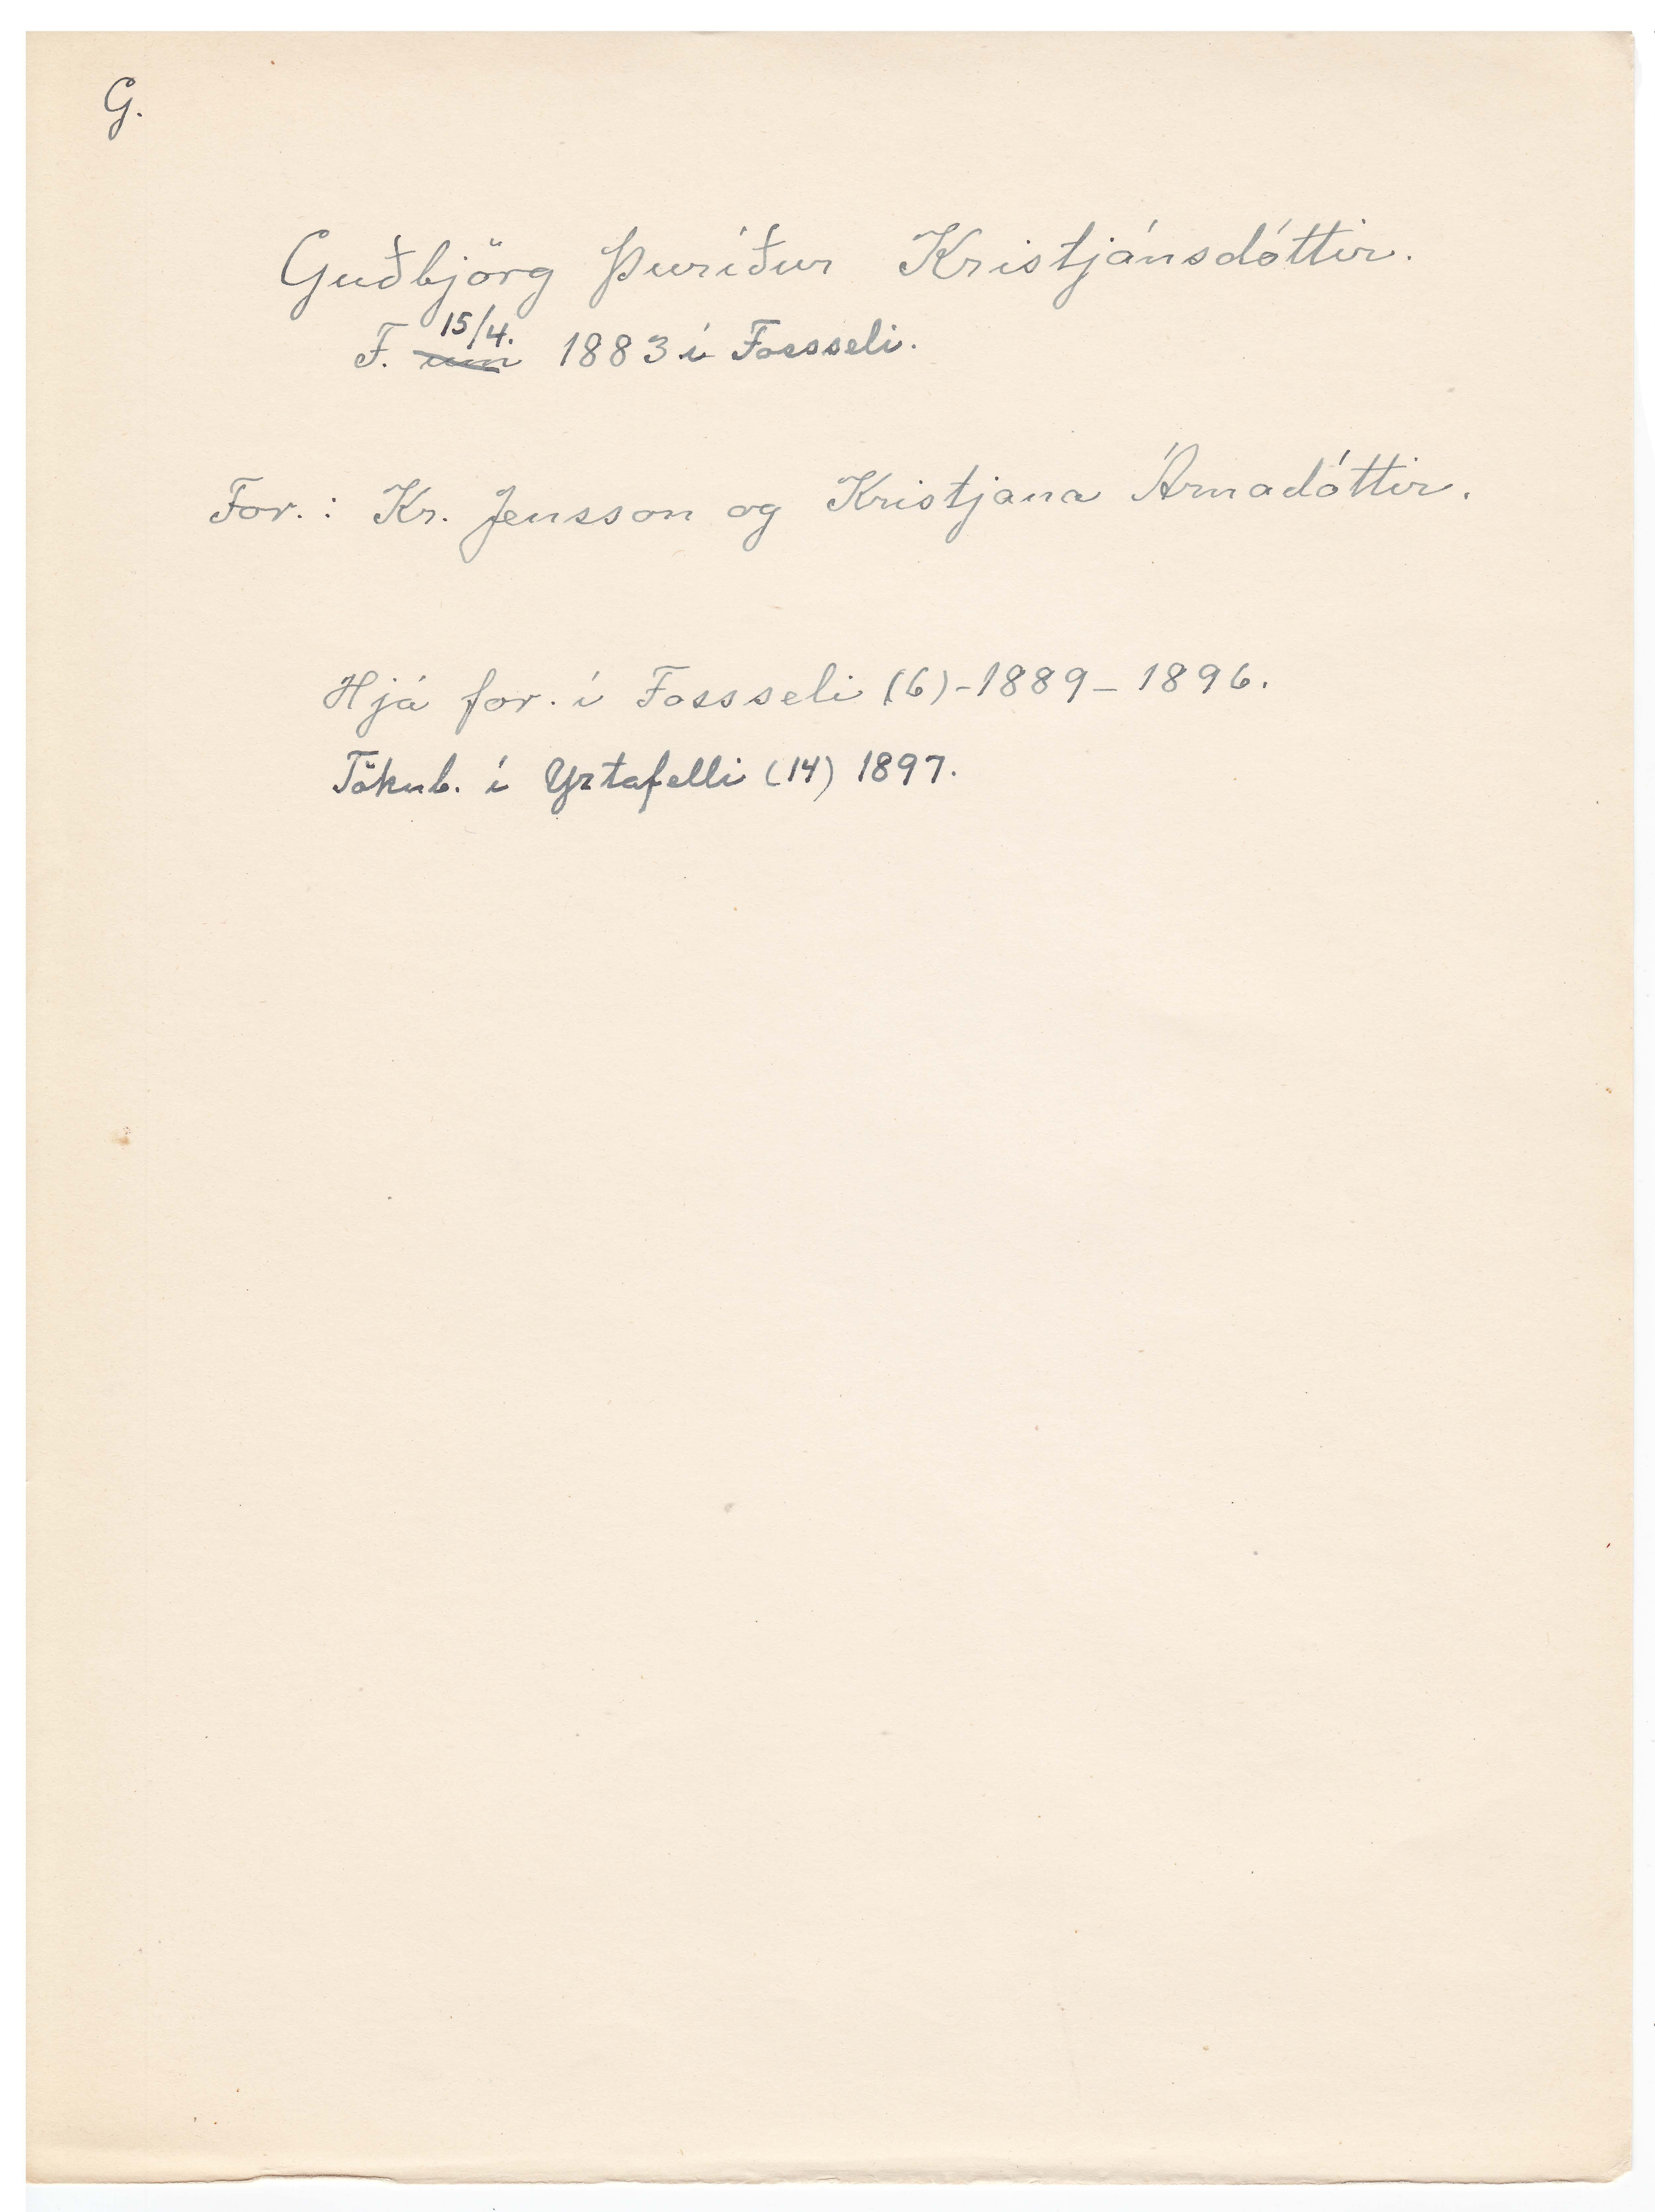 G.
Guðbjörg Þuríður Kristjánsdóttir.
15/4.
F. um 1883 í Fossseli.
For.: Kr. Jensson og Kristjana Árnadóttir.
Hjá for. í Fossseli (6) - 1889 - 1896.
Tökub. í Yztafelli (14) 1897.